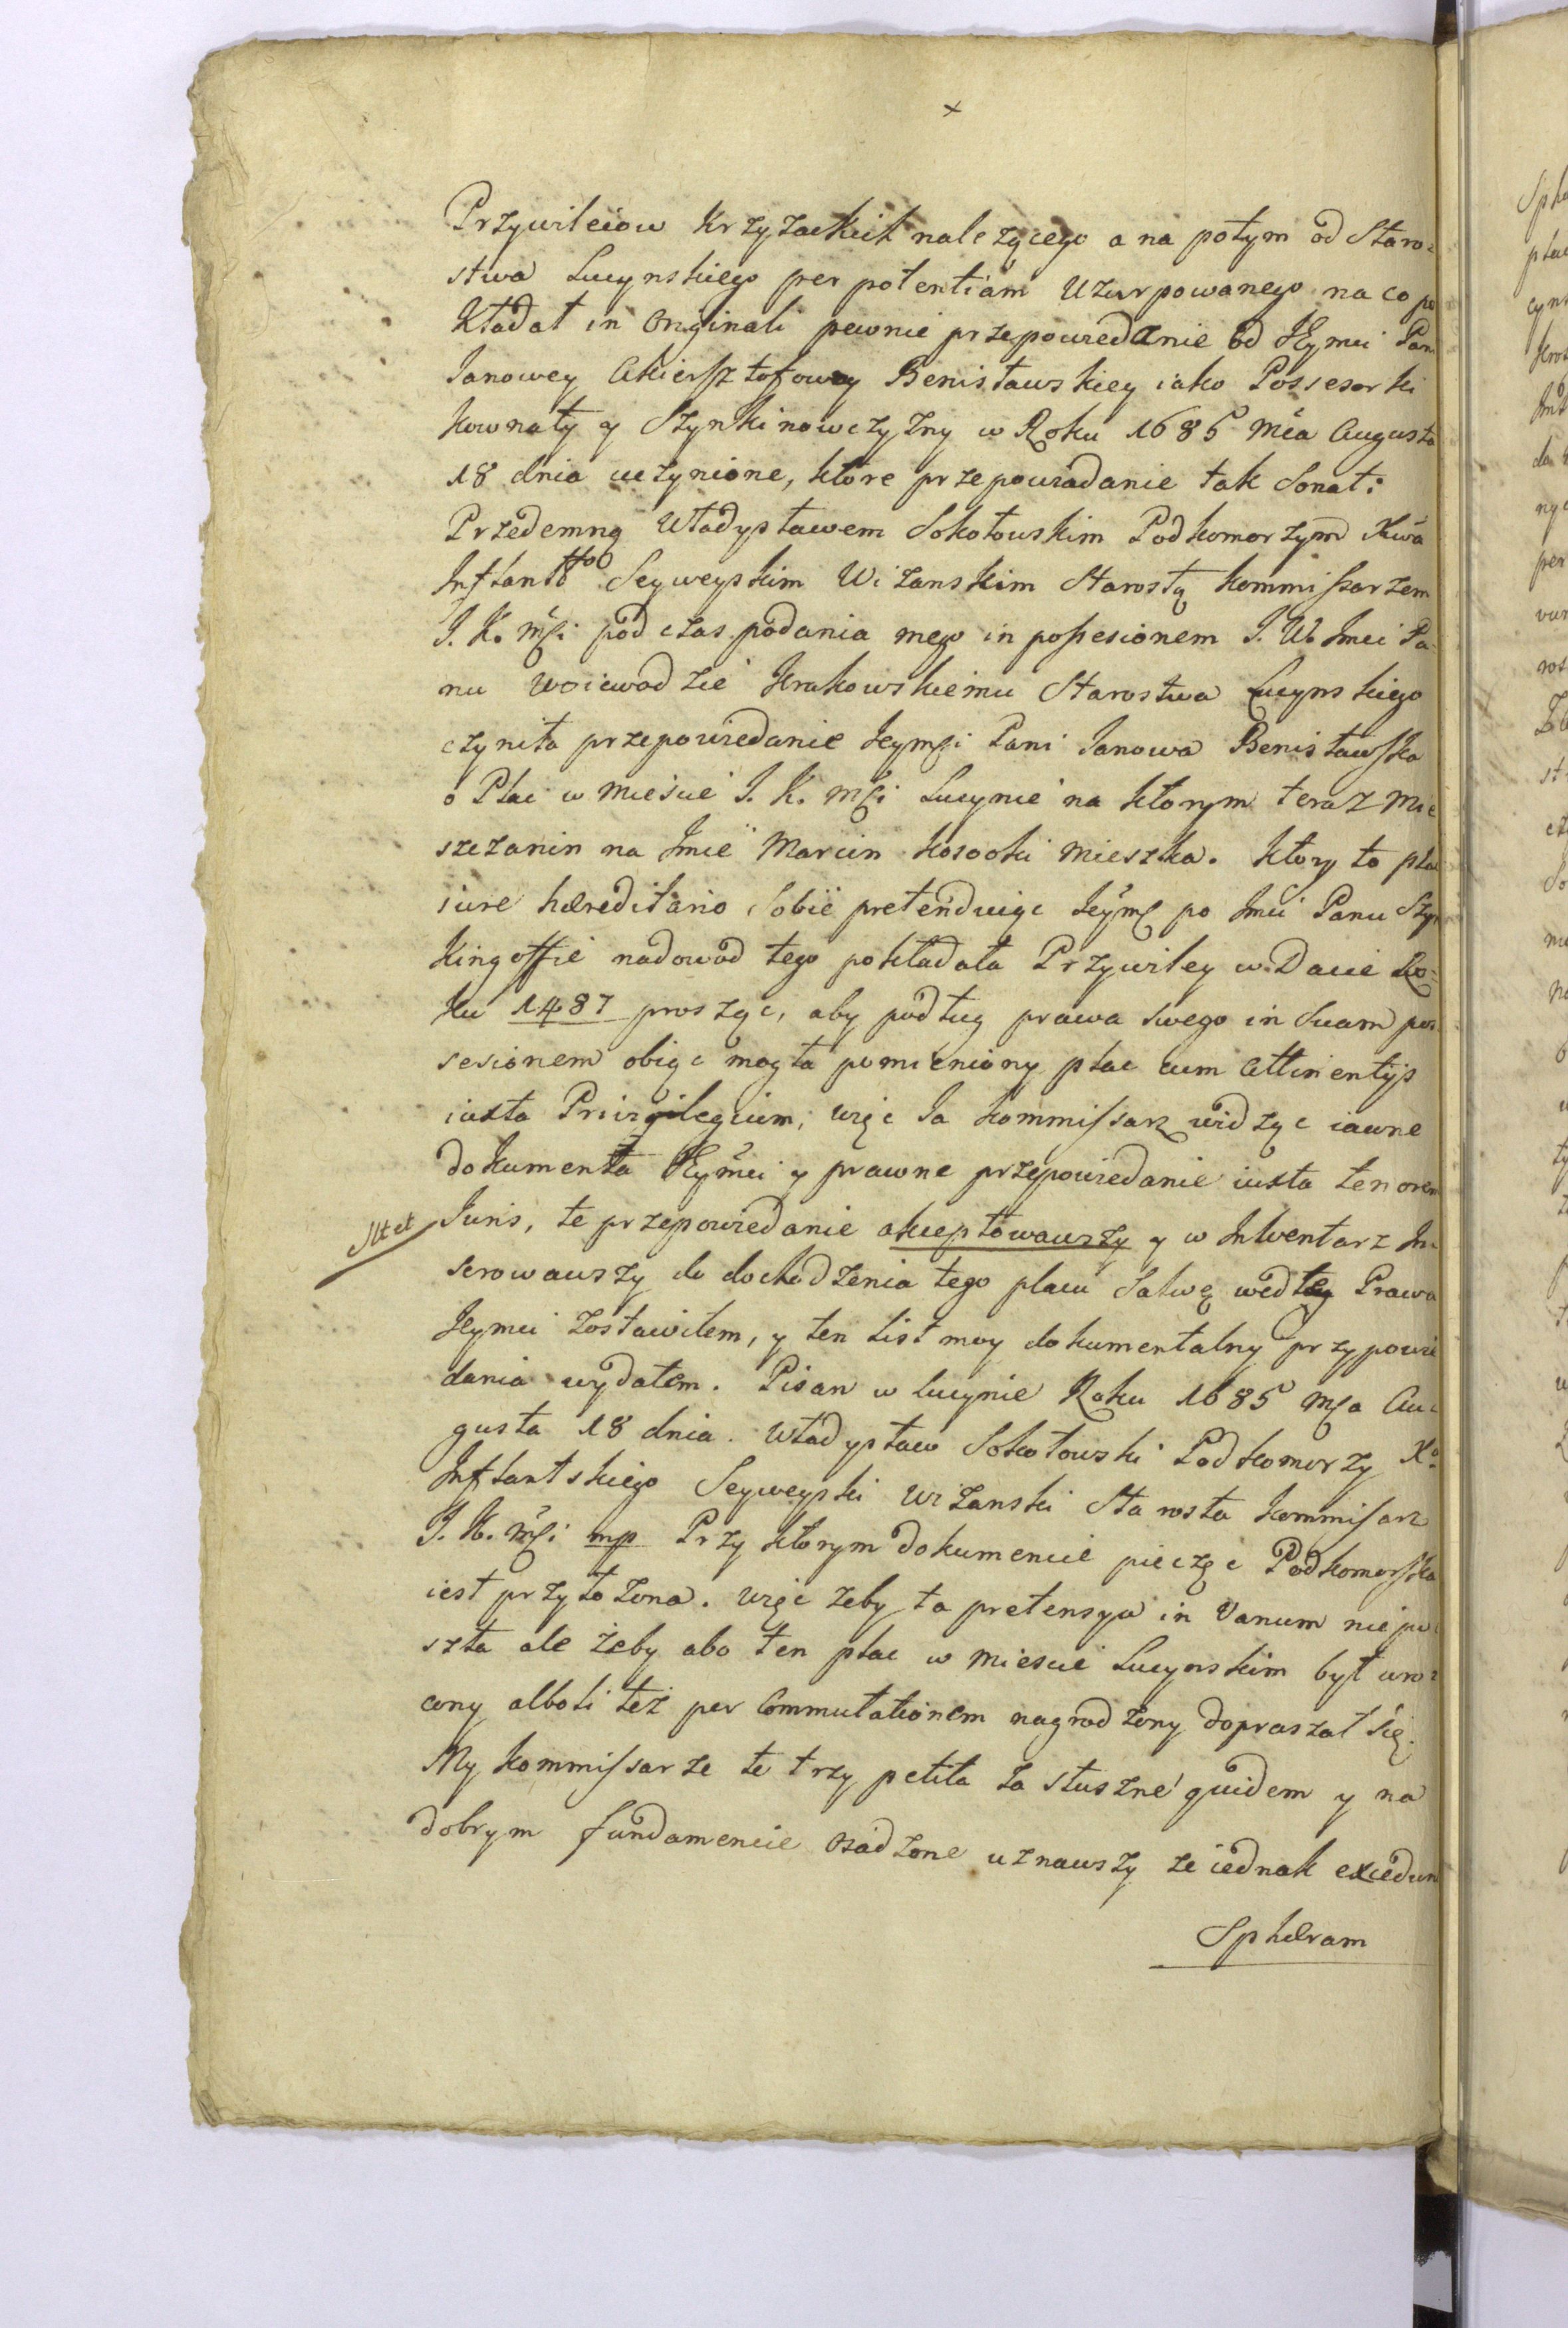 ×
Przywileiow Krzyzackich należącego a na potym od Staro-
stwa Lucynskiego per potentiam uzurpowanego na co po
kładał in originali pewnie przepowiedanie od JEymci Pani
Janowey Akiersztofowey Benisławskiey iako Possesorki
Kownaty y Szynkinowczyzny w Roku 1685 mca Augusta
18 dnia uczynione, ktore przepowiadanie tak Sonat:
Przedemną Władysławem Sokołowskim Podkomorzym Xwa
Inflantgo Seyweyskim Wizanskim Starostą kommissarzem
J. K. mśi pod czas podania mego in possesionem J. W. Jmci Pa-
nu woiewodzie Krakowskiemu Starostwa Lucynskiego
czyniła przepowiedanie Jeymśi Pani Janowa Benisławska
o Plac w mieście J. K. mśi Lucynie na ktorym teraz mie
szczanin na Jmie Marcin kosooki mieszka. ktory to plac
iure hæreditario Sobie pretenduiąc Jeymś po Jmći Panu Szyn
kingoffie nadowod tego pokładała Przywiley w Dacie Ro-
ku 1487 prosząc, aby podług prawa swego in Suam pos
sesionem obiąc mogła pomieniony plac cum attinentijs
iuxta Privilegium, więc Ja kommissarz widząc iawne
dokumenta JEymci y prawne przepowiedanie iuxta tenorem
Juris, te przepowiedanie akceptowawszy y w Inwentarz In-
serowawszy do dochodzenia tego placu Salwę według Prawa
JEymci zostawiłem, y ten list moy dokumentalny przypowie
dania wydałem. Pisan w Lucynie Roku 1685 mśa Au-
gusta 18 dnia. Władysław Sokołowski Podkomorzy Xa
Inflantskiego Seyweyski Wizanski Starosta kommisarz
J. K. mśi mp Przy ktorym dokumencie pieczęc Podkomorska
iest przyłożona. więc zeby ta pretensya in Vanum niepo
szła ale żeby abo ten plac w miescie Lucynskim był wro-
cony alboli też per Commutationem nagrodzony dopraszał się.
My kommissarze te trzy petita za słuszne quidem y na
dobrym fundamencie osadzone uznawszy ze iednak excedun
Sphæram